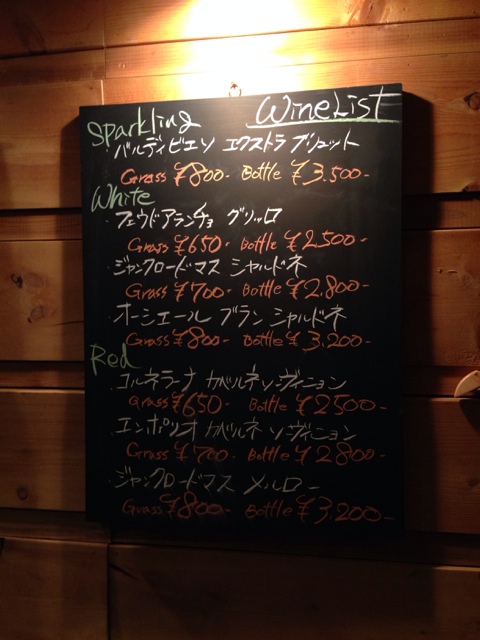 Wine List
Sparkling
バルディビエソ エクストラ ブリュット
Grass ¥800- Bottle ¥3.500-
White
・フェウドアランチョ グリッロ
Grass ¥650- Bottle ¥2500-
・ジャンクロードマス シャルドネ
Grass ¥700- Bottle ¥2.800-
・オーシエール ブラン シャルドネ
Grass ¥800- Bottle ¥3,200-
Red
・コルネラーナ カベルネソーヴィニョン
Grass ¥650- Bottle ¥2500-
・エンポリオ カベルネ ソーヴィニョン
Grass ¥700- Bottle ¥2800-
・ジャンクロードマス メルロー
Grass ¥800- Bottle ¥3.200-